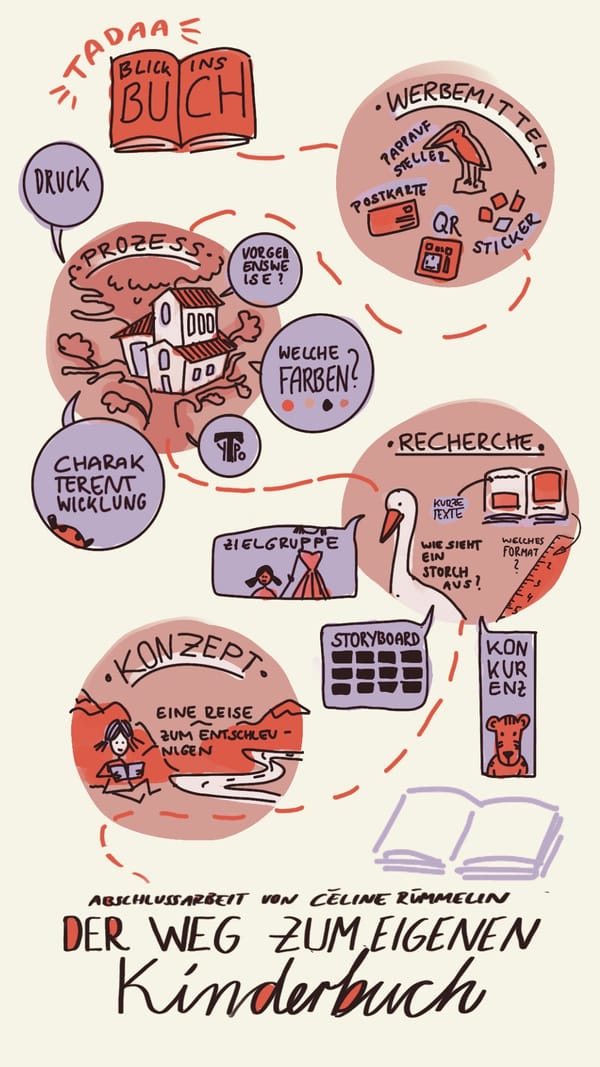 TADAA
BLICK INS
BUCH
· WERBEMITTEL ·
PAPPAUF
STELLER
POSTKARTE
QR
STICKER
DRUCK
PROZESS
VORGEH
ENSWE
ISE?
WELCHE
FARBEN?
TYPO
CHARAK
TERENT
WICKLUNG
· RECHERCHE ·
KURZE
TEXTE
WELCHES
FORMAT
?
WIE SIEHT
EIN
STORCH
AUS?
ZIELGRUPPE
STORYBOARD
KON
KUR
ENZ
· KONZEPT ·
EINE REISE
ZUM ENTSCHLEU-
NIGEN
ABSCHLUSSARBEIT VON CÉLINE RÜMMELIN
DER WEG ZUM EIGENEN
Kinderbuch